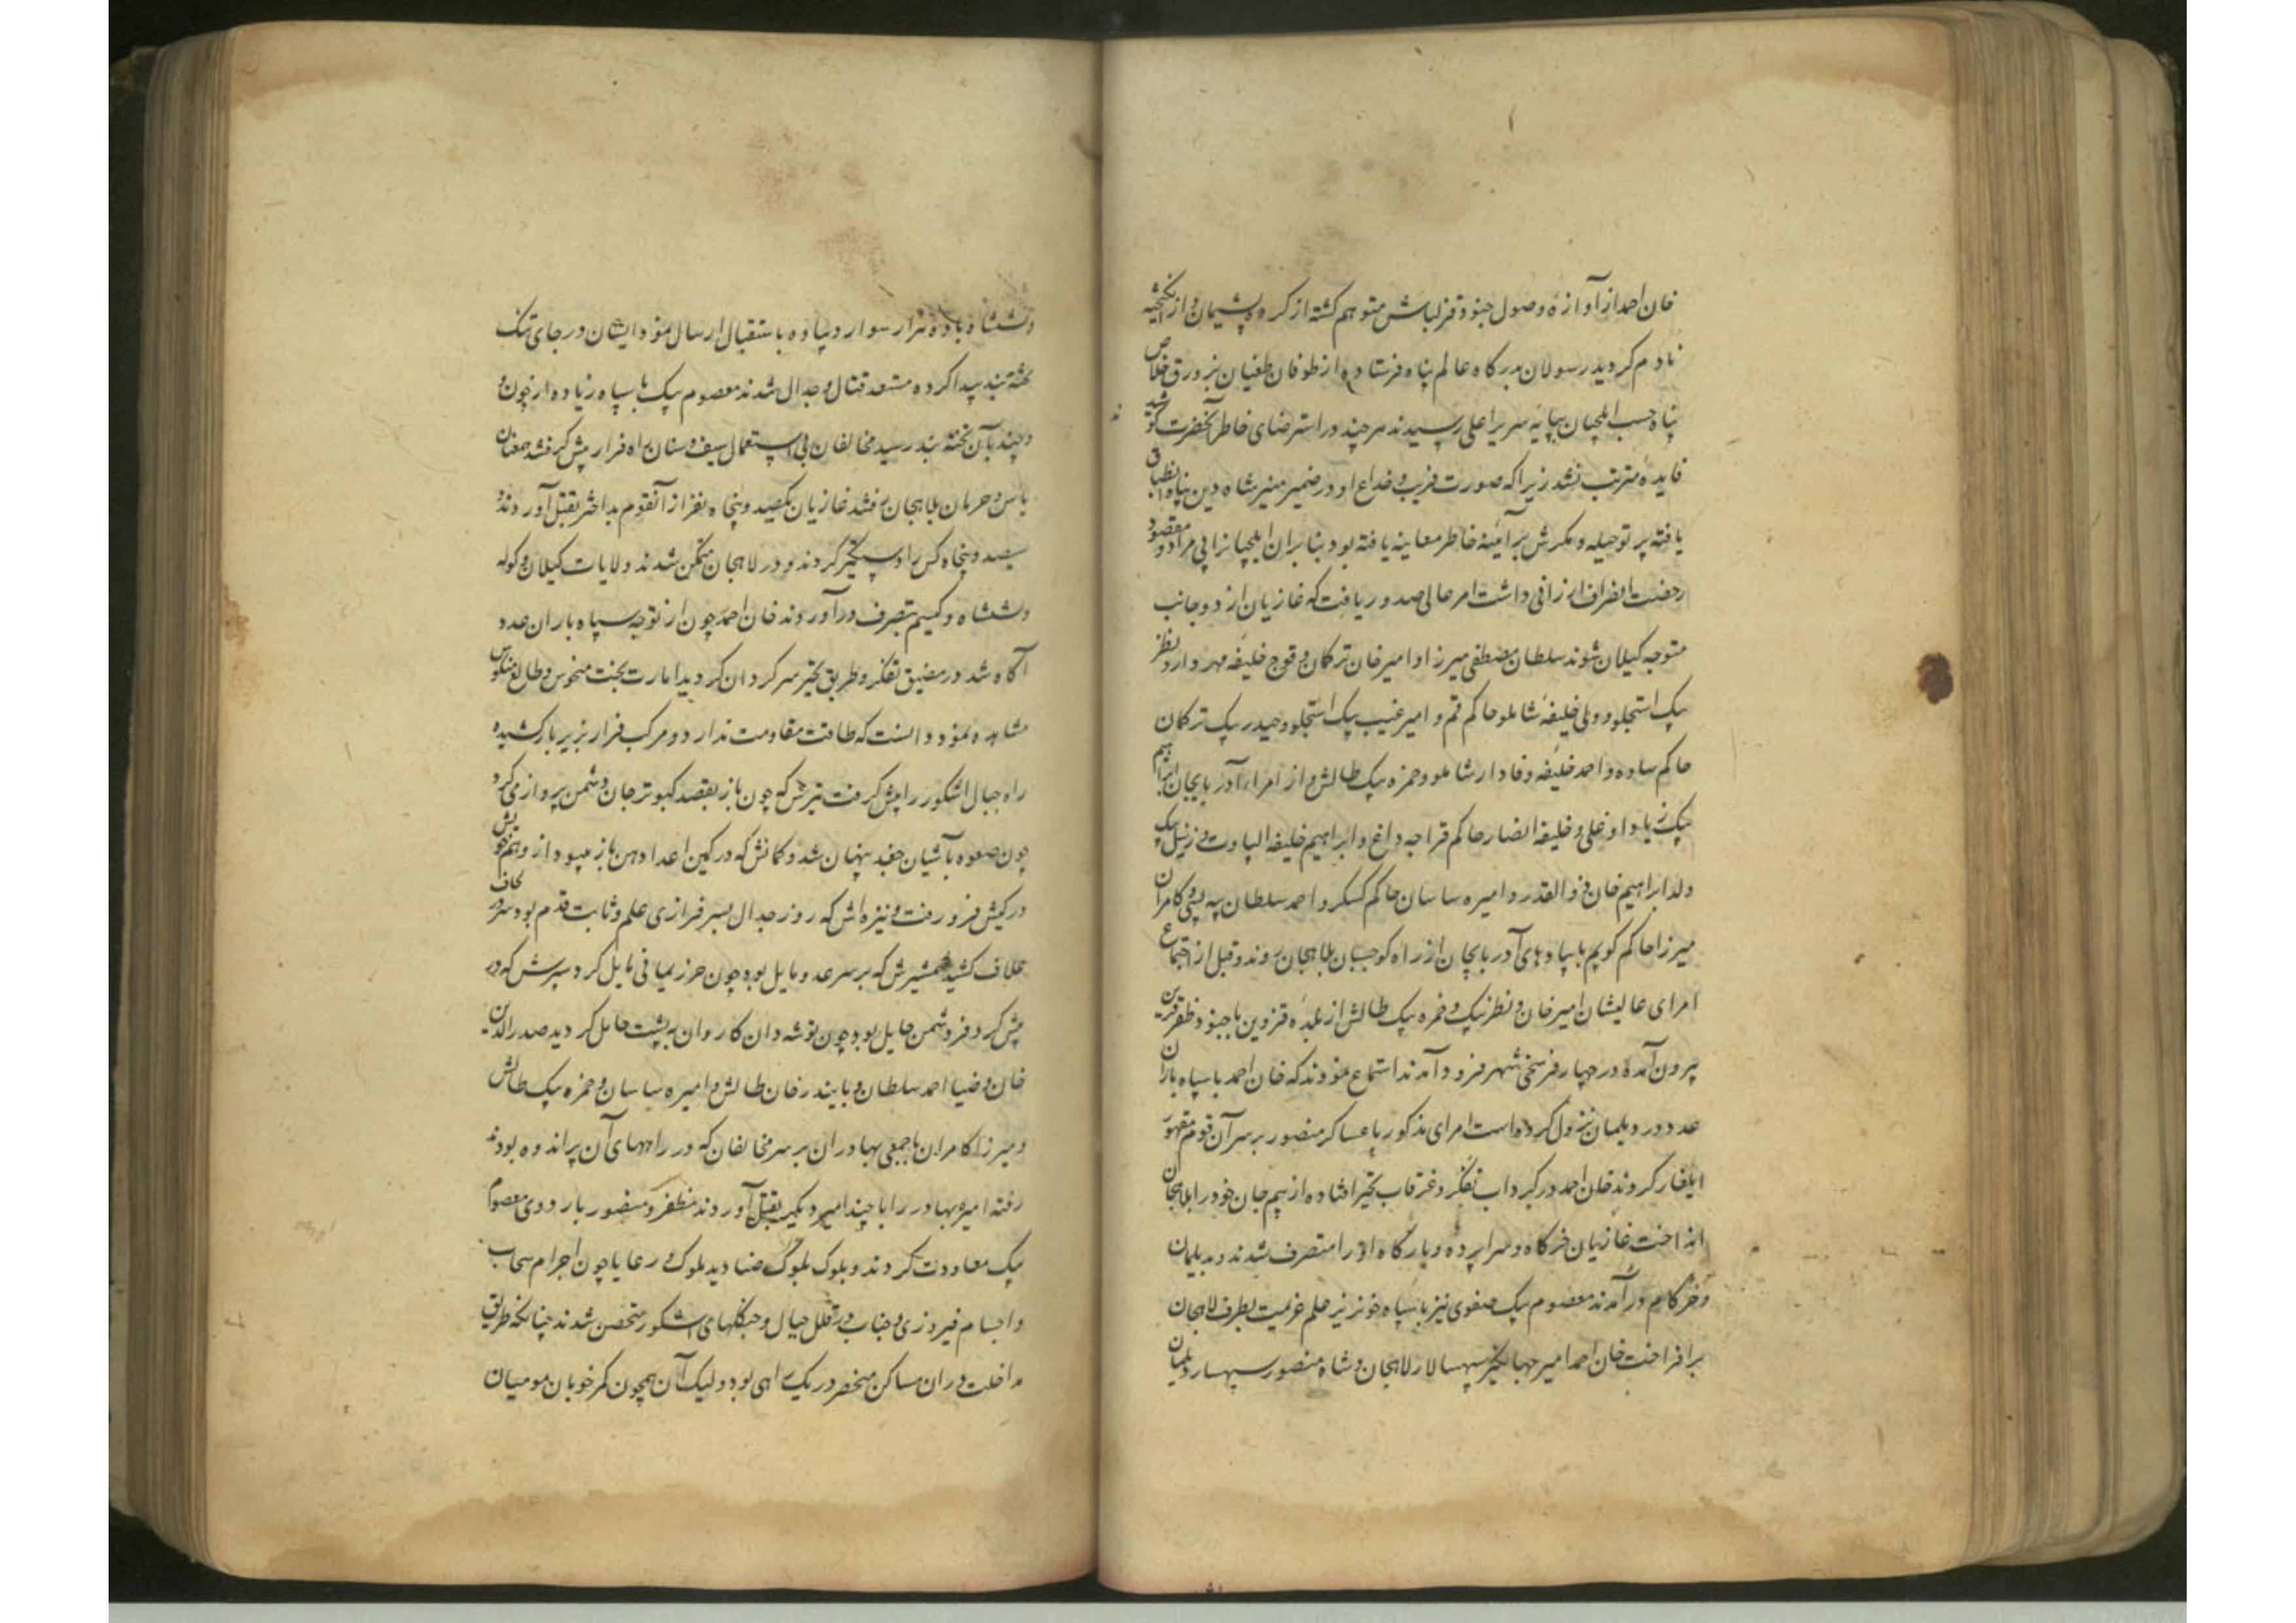 خان احمد از آوازه وصول جنود قزلباش متوهم گشته از کرده پشیمان و از انگیخته
نادم گردید رسولان بدرگاه عالم پناه فرستاده از طوفان طغیان بزورق خلاص
پناه جست ایلچیان بپایه سریر اعلی رسیدند هر چند در استرضای خاطر آنحضرت کوشیدند
فایده مترتب نشد زیرا که صورت فریب و خداع او در ضمیر منیر شاه دین پناه انطباق
یافته پرتو حیله و مکرش بر آئینه خاطر معاینه یافته بود بنابران ایلچیانرا بی مراد و مقصود
رخصت انصراف ارزانی داشت امر عالی صدور یافت که غازیان از دو جانب
متوجه کیلان شوند سلطان مصطفی میرزا و امیر خان ترکمان و قوج خلیفه مهردار و نظر
بیک استجلو و ولی خلیفه شاملو حاکم قم و امیر غیب بیک استجلو و حیدر بیک ترکمان
حاکم ساوه و احمد خلیفه وفادار شاملو و حمزه بیک طالش و از امراء آذربایجان ابراهیم
بیک زیاد اوغلی و خلیفه انصار حاکم قراجه داغ و ابراهیم خلیفه الپاوت و زنیل بیک
ولد ابراهیم خان ذو القدر و امیره ساسان حاکم کسکر و احمد سلطان بیه پسی و کامران
میرزا حاکم کویم با سپاههای آذربایجان از راه کوجسبان بلاهجان روند و قبل از اجتماع
امرای عالیشان امیر خان و نظر بیک و حمزه بیک طالش از بلده قزوین با جنود ظفر قرین
بیرون آمده در چهار فرسخی شهر فرود آمدند استماع نمودند که خان احمد با سپاه باران
عدد در دیلمان نزول کرده است امرای مذکور با عساکر منصور بر سر آن قوم مقهور
ایلغار کردند خان احمد در گرداب تفکر و غرقاب تحیر افتاده از بیم جان خود را بلاهجان
انداخت غازیان خرگاه و سراپرده و بارگاه او را متصرف شدند و بدیلمان
و خرکام درآمدند معصوم بیک صفوی نیز با سپاه خونریز علم عزیمت بطرف لاهجان
برافراخت خان احمد امیر جهانگیر سپهسالار لاهجان و شاه منصور سپهسالار دیلمان
و شفتا را با ده هزار سوار و پیاده باستقبال ارسال نمود و ایشان در جای تنک
تخته بند پیدا کرده مستعد قتال و جدال شدند معصوم بیک با سپاه زیاده از چون و
و چند بآن تخته بند رسید مخالفان بی استعمال سیف و سنان راه فرار پیش گرفتند معنان
یاس و حرمان بلاهجان رفتند غازیان یکصد و پنجاه نفر از آنقوم بد اختر بقتل آوردند و
سیصد و پنجاه کس را دستگیر کردند و در لاهجان متمکن شدند ولایات کیلان و کوله
و شفتا و کهیم بتصرف درآوردند خان احمد چون از توجه سپاه باران عدد
آگاه شد در مضیق تفکر و طریق تحیر سرگردان گردید امارت بخت منحوس و طالع منکوس
مشاهده نمود و دانست که طاقت مقاومت ندارد و مرکب فرار بزیر بار کشیده
راه جبال اشکور را پیش گرفت تیرش که چون باز بقصد کبوتر جان دشمن پرواز می کرد
چون صعوه بآشیان جغد پنهان شد و کمانش که در کمین اعدا دهن باز می‌بود از وهم خویش
در کیش فرو رفت و نیزه‌اش که روز جدال بسرفرازی علم و ثابت قدم بود سر در
بغلاف کشید شمشیرش که بر سر عدو مایل بود چون حرز یمانی مایل کرد و سپرش که در
پیش کر و فر دشمن حایل بود چون توشه دان کاروان به پشت حایل گردید صدر الدین
خان و ضیا احمد سلطان و بایندر خان طالش و امیره ساسان و حمزه بیک طالش
و میرزا کامران با جمعی بهادران بر سر مخالفان که در راههای آن پراکنده بودند
رفته امیره بهادر را با چند امیر دیگر بقتل آوردند مظفر و منصور باردوی معصوم
بیک معاودت کردند و بلوک بلوک صنادید ملوک و رعایا چون اجرام سحاب
و اجسام فیروزی جناب در قلل جبال و جنگلهای اشکور متحصن شدند چنانکه طریق
مداخلت در ان مساکن منحصر در یک راهی بود و لیک آن همچون کمر خوبان مو میان